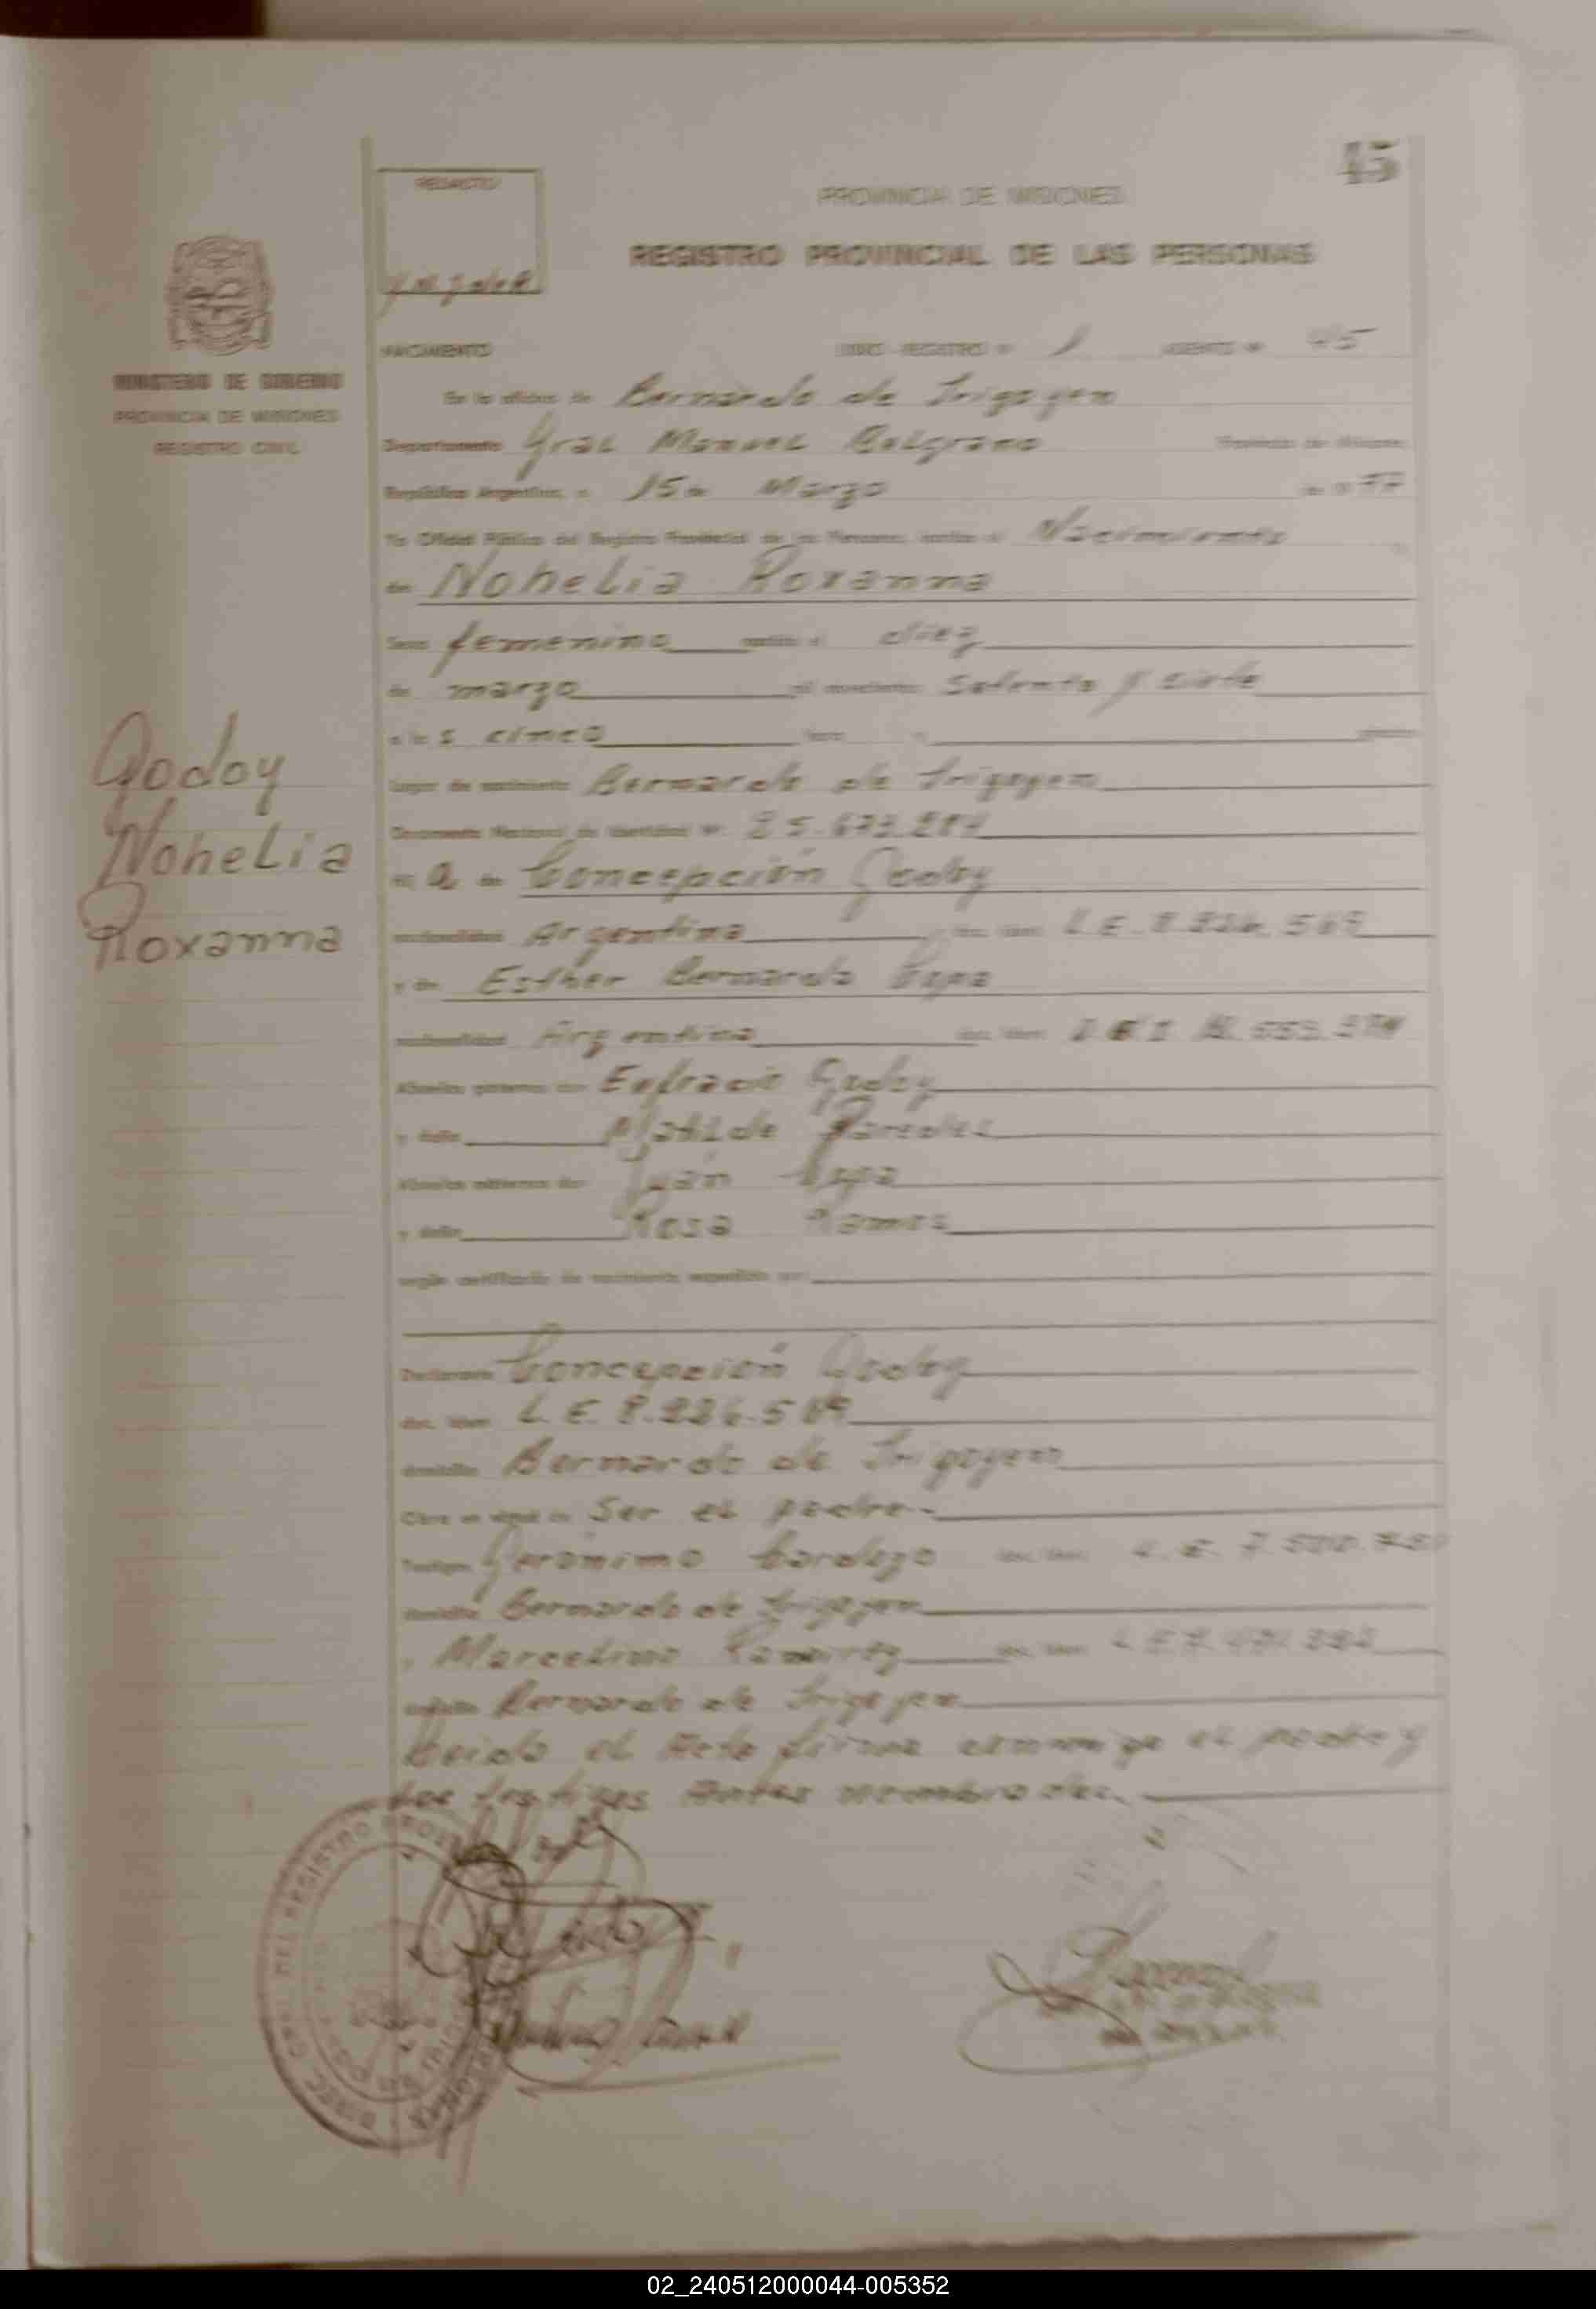 45
REDACTO
PROVINCIA DE MISIONES
REGISTRO PROVINCIAL DE LAS PERSONAS
MINISTERIO DE GOBIERNO
PROVINCIA DE MISIONES
REGISTRO CIVIL
NACIMIENTO LIBRO - REGISTRO Nº 1 ASIENTO Nº 45
En la oficina de Bernardo de Irigoyen
Departamento Gral Manuel Belgrano Provincia de Misiones
República Argentina, a 15 de Marzo de 1977
Yo Oficial Público del Registro Provincial de las Personas, inscribo el Nacimiento
de Nohelia Roxanna
Sexo femenino nacido el diez
de marzo mil novecientos setenta y siete
a las cinco horas
Lugar de nacimiento Bernardo de Irigoyen
Documento Nacional de Identidad Nº 25.673.284
Godoy
Nohelia
Roxanna
hija de Concepción Godoy
nacionalidad Argentina doc. iden. L.E. 8.226.569
y de Esther Bernarda
nacionalidad Argentina doc. iden.
Abuelos paternos don Eufracio Godoy
y doña Matilde Paredes
Abuelos maternos don Juan
y doña Rosa Ramos
según certificado de nacimiento expedido por
Declarante Concepción Godoy
doc. iden. L.E.
domicilio Bernardo de Irigoyen
Obra en virtud de Ser el padre.-
Testigos Gerónimo Cardozo doc. iden. L.E.
domicilio Bernardo de Irigoyen
y Marcelino Ramirez doc. iden. L.E.
domicilio Bernardo de Irigoyen
Leida el Acta firma conmigo el padre y
los testigos Antes nombrados.
02_240512000044-005352